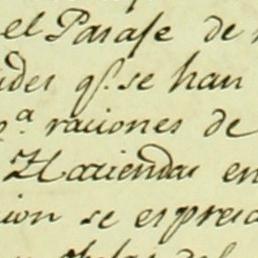 el Parage de
udes q.e se han
p.a raciones de
Haciendas en
cion se espresa